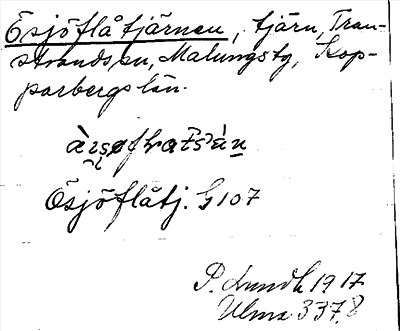 Ösjöflåtjärnen, tjärn, Tran-
strandssn, Malungstg, Kop-
parbergs län.
Ösjöflåtj. G 107
P. Lundh 1917
Ulma 337,8